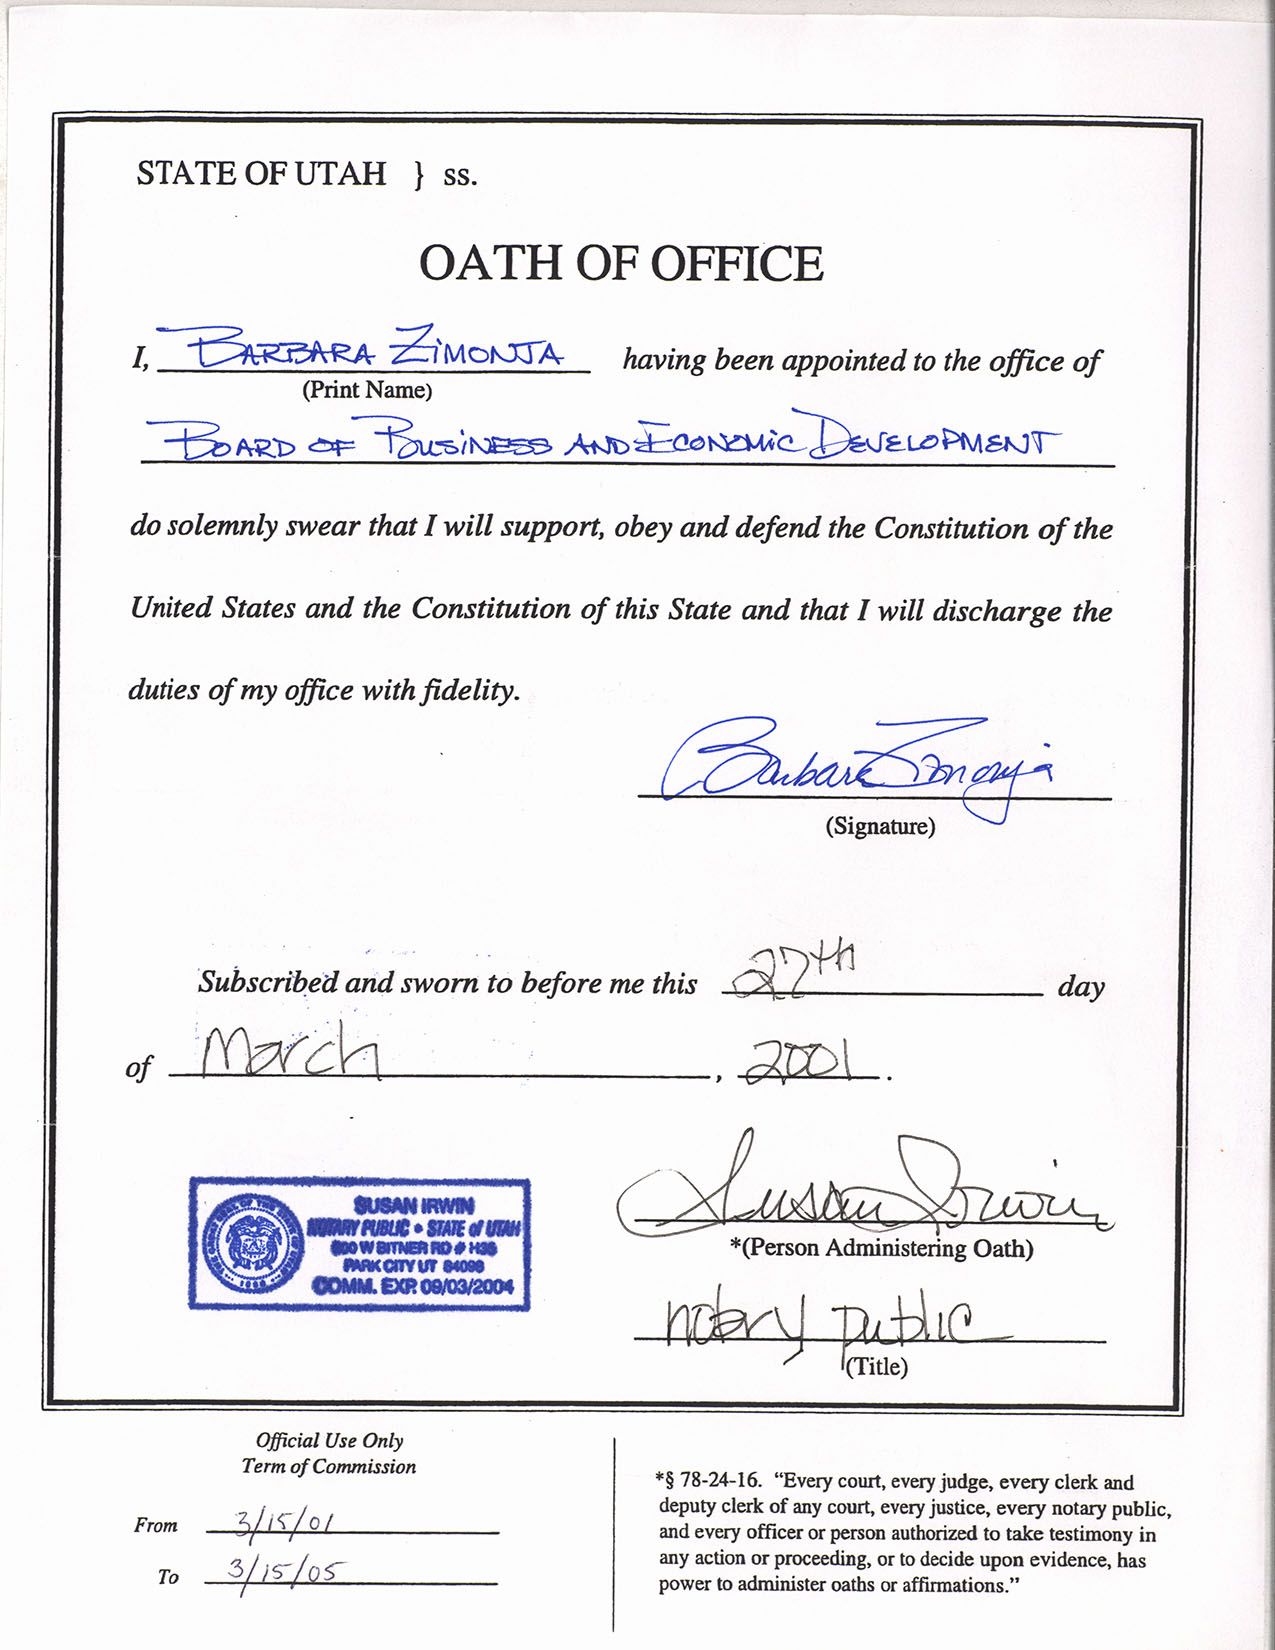 STATE OF UTAH } ss.
OATH OF OFFICE
I, BARBARA ZIMONJA having been appointed to the office of
(Print Name)
BOARD OF BUSINESS AND ECONOMIC DEVELOPMENT
do solemnly swear that I will support, obey and defend the Constitution of the
United States and the Constitution of this State and that I will discharge the
duties of my office with fidelity.
Barbara Zimonja
(Signature)
Subscribed and sworn to before me this 27th day
of March, 2001.
SUSAN IRWIN
NOTARY PUBLIC • STATE of UTAH
W BITNER RD #
PARK CITY UT 84098
COMM. EXP. 09/03/2004
Susan Irwin
*(Person Administering Oath)
notary public
(Title)
Official Use Only
Term of Commission
From 3/15/01
To 3/15/05
*§ 78-24-16. "Every court, every judge, every clerk and
deputy clerk of any court, every justice, every notary public,
and every officer or person authorized to take testimony in
any action or proceeding, or to decide upon evidence, has
power to administer oaths or affirmations."